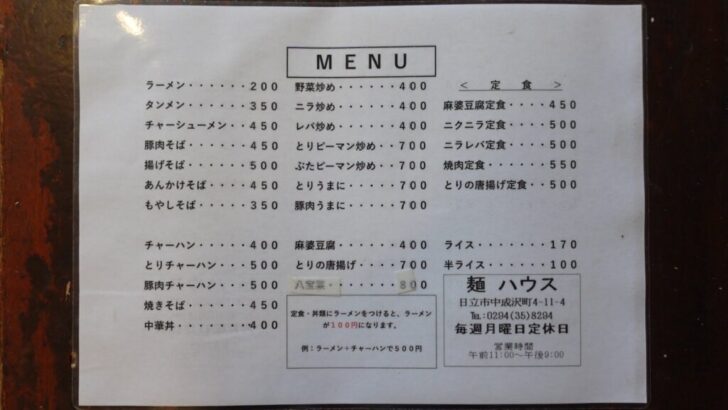 MENU
ラーメン・・・・・・200
タンメン・・・・・・350
チャーシューメン・・450
豚肉そば・・・・・・450
揚げそば・・・・・・500
あんかけそば・・・・450
もやしそば・・・・・350
チャーハン・・・・・400
とりチャーハン・・・500
豚肉チャーハン・・・500
焼きそば・・・・・・450
中華丼・・・・・・・400
野菜炒め・・・・・・400
ニラ炒め・・・・・・400
レバ炒め・・・・・・400
とりピーマン炒め・・700
ぶたピーマン炒め・・700
とりうまに・・・・・700
豚肉うまに・・・・・700
麻婆豆腐・・・・・・400
とりの唐揚げ・・・・700
八宝菜・・・・・・・800
定食・丼類にラーメンをつけると、ラーメン
が100円になります。
例:ラーメン+チャーハンで500円
< 定 食 >
麻婆豆腐定食・・・・450
ニクニラ定食・・・・500
ニラレバ定食・・・・500
焼肉定食・・・・・・550
とりの唐揚げ定食・・500
ライス・・・・・・・170
半ライス・・・・・・100
麺 ハウス
日立市中成沢町4-11-4
℡:0294(35)8294
毎週月曜日定休日
営業時間
午前11:00~午後9:00